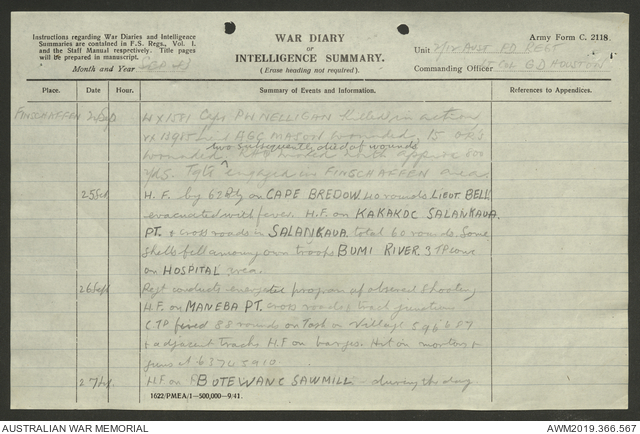 Instructions regarding War Diaries and Intelligence
Summaries are contained in F.S. Regs., Vol. I.
and the Staff Manual respectively. Title pages
will be prepared in manuscript.
Month and Year
WAR DIARY
OR
INTELLIGENCE SUMMARY.
(Erase heading not required).
Army Form C. 2118
Unit 2/12 AUST FD REGT
Commanding Officer LT COL G D HOUSTON
Place. Date Hour. Summary of Events and Information. References to Appendices.
FINSCHAFFEN Capt NELLIGAN killed in action
MASON wounded, 15
two subsequently died of wounds
wounded,
yds. engaged in FINSCHAFFEN area.
25 Sept H.F. by 62 Bty on CAPE BREDOW 40 rounds LIEUT. BELL
evacuated with fever. H.F. on KAKAKOC SALANKAUA
PT. + cross roads in SALANKAUA. total 60 rounds. Some
shells fell among own troops BUMI RIVER.
on HOSPITAL area.
26 Sept Regt conducts energetic program of observed shooting
H.F. on MANEBA PT. cross roads + track junctions
fired 88 rounds on village
+ adjacent tracks H.F on barges. Hit on mortars +
guns at
27 H.F. on BOTEWANC SAWMILL - during the day
1622/PMEA/1-500,000-9/41.
AUSTRALIAN WAR MEMORIAL
AWM2019.366.567